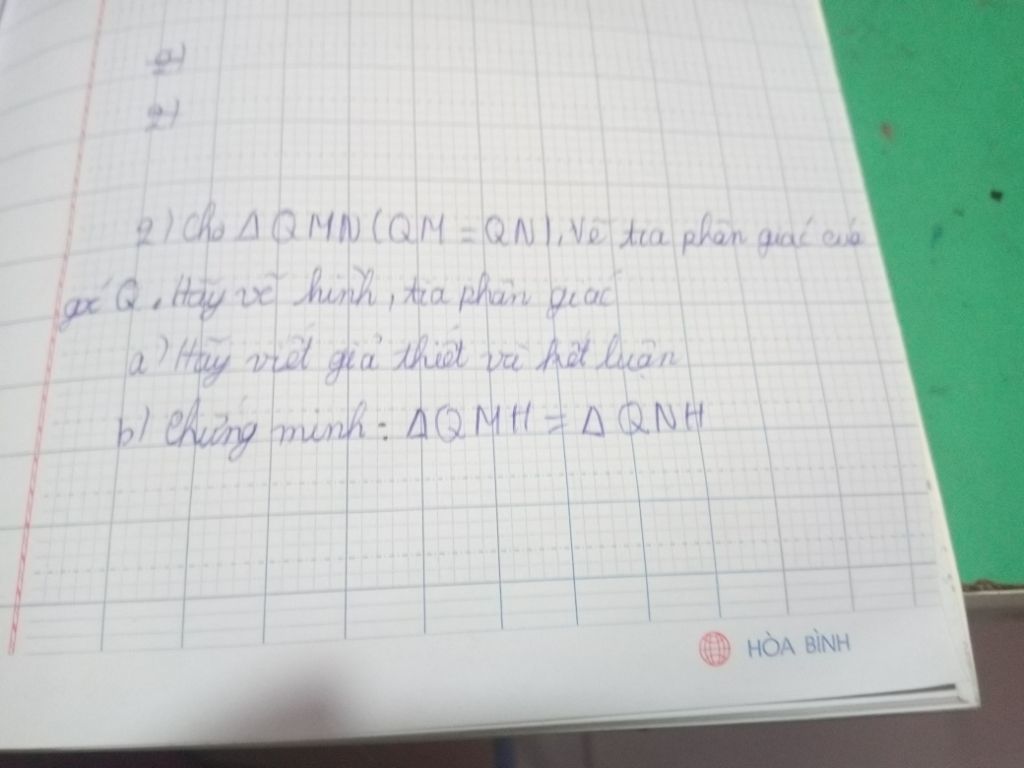 a)
2)
2) Cho Δ QMN (QM = QN). Vẽ tia phân giác của
góc Q. Hãy vẽ hình, tia phân giác
a) Hãy viết giả thiết và kết luận
b) Chứng minh: Δ QMH = Δ QNH
HÒA BÌNH